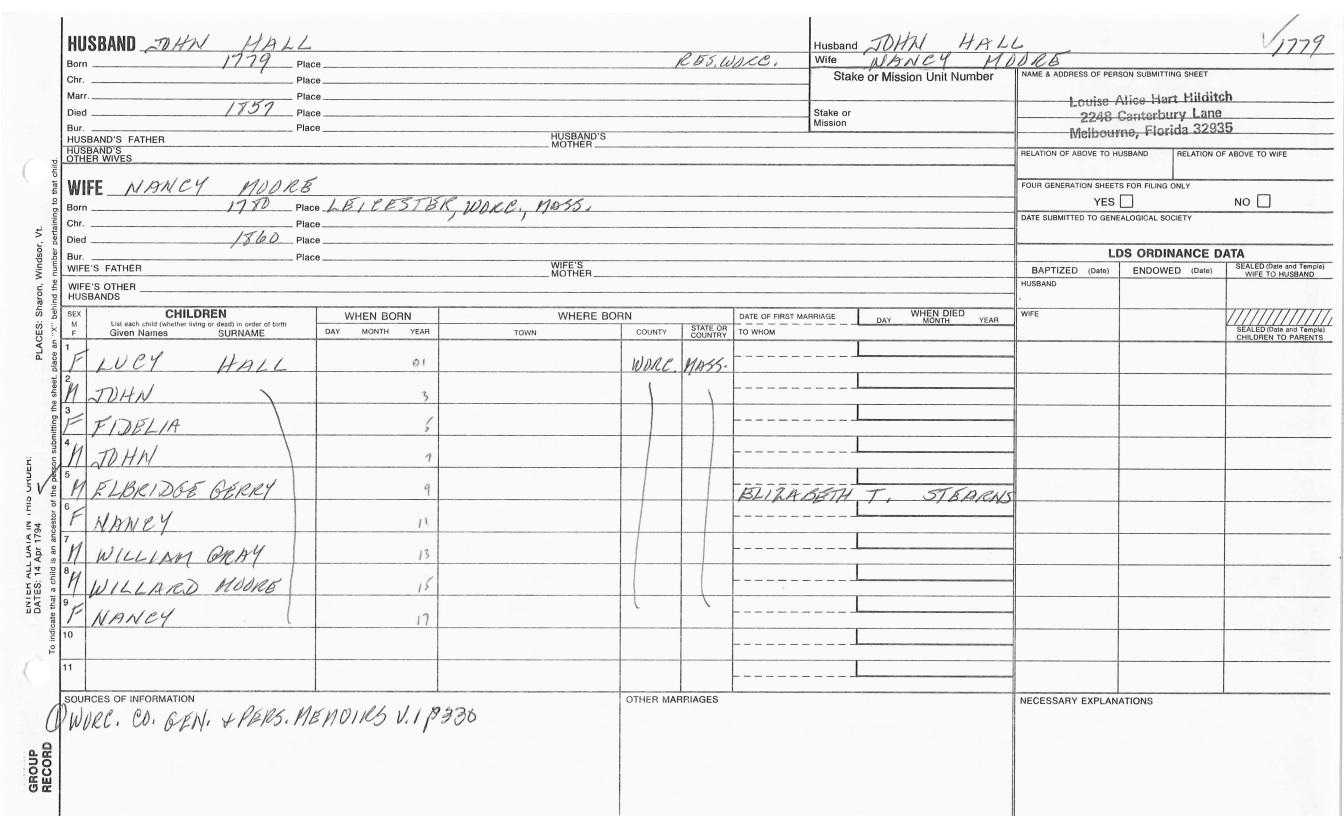 HUSBAND JOHN HALL
Born 1779 Place RES. WORC.
Chr. Place
Marr. Place
Died 1857 Place
Bur. Place
HUSBAND'S FATHER HUSBAND'S MOTHER
HUSBAND'S OTHER WIVES
Husband JOHN HALL √1779
Wife NANCY MOORE
Stake or Mission Unit Number
Stake or Mission
NAME & ADDRESS OF PERSON SUBMITTING SHEET
Louise Alice Hart Hilditch
2248 Canterbury Lane
Melbourne, Florida 32935
RELATION OF ABOVE TO HUSBAND RELATION OF ABOVE TO WIFE
FOUR GENERATION SHEETS FOR FILING ONLY
YES NO
DATE SUBMITTED TO GENEALOGICAL SOCIETY
WIFE NANCY MOORE
Born 1780 Place LEICESTER, WORC., MASS.
Chr. Place
Died 1860 Place
Bur. Place
WIFE'S FATHER WIFE'S MOTHER
WIFE'S OTHER HUSBANDS
LDS ORDINANCE DATA
BAPTIZED (Date) ENDOWED (Date) SEALED (Date and Temple) WIFE TO HUSBAND
HUSBAND
WIFE
SEALED (Date and Temple) CHILDREN TO PARENTS
SEX M F
CHILDREN
List each child (whether living or dead) in order of birth
Given Names SURNAME
WHEN BORN
DAY MONTH YEAR
WHERE BORN
TOWN COUNTY STATE OR COUNTRY
DATE OF FIRST MARRIAGE
TO WHOM
WHEN DIED
DAY MONTH YEAR
1 F LUCY HALL 01 WORC. MASS.
2 M JOHN 3
3 F FIDELIA
4 M JOHN 7
5 M ELBRIDGE GERRY 9 ELIZABETH T. STEARNS
6 F NANCY 11
7 M WILLIAM GRAY 13
8 M WILLARD MOORE 15
9 F NANCY 17
10
11
SOURCES OF INFORMATION
① WORC. CO. GEN. & PERS. MEMOIRS V. 1 p330
OTHER MARRIAGES
NECESSARY EXPLANATIONS
ENTER ALL DATA IN THIS ORDER:
DATES: 14 Apr 1794
PLACES: Sharon, Windsor, Vt.
To indicate that a child is an ancestor of the person submitting the sheet, place an "X" behind the number pertaining to that child.
GROUP RECORD